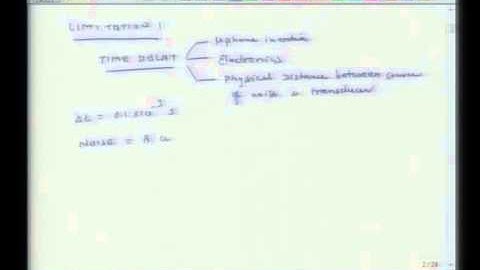 LIMITATIONS 1
TIME DELAY
μphone inertia
Electronics
Physical distance between source
of noise & transducer
Δt =
Noise = A
2/28